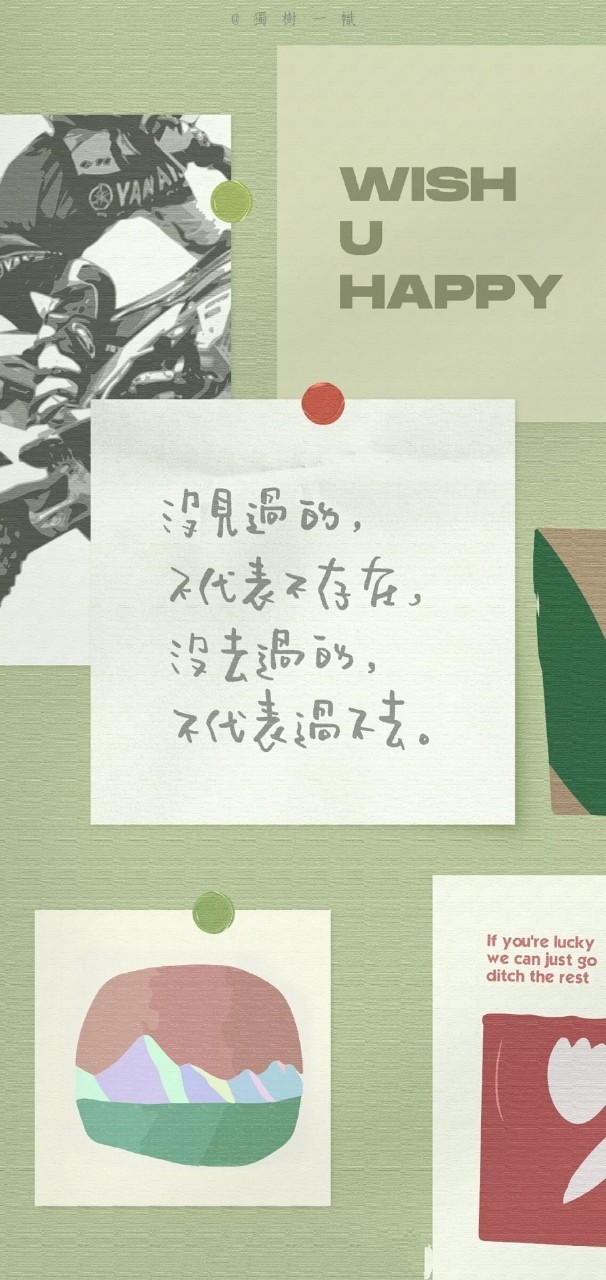 @獨樹一幟
WISH
U
HAPPY
沒見過的，
不代表不存在，
沒去過的，
不代表過不去。
If you're lucky
we can just go
ditch the rest